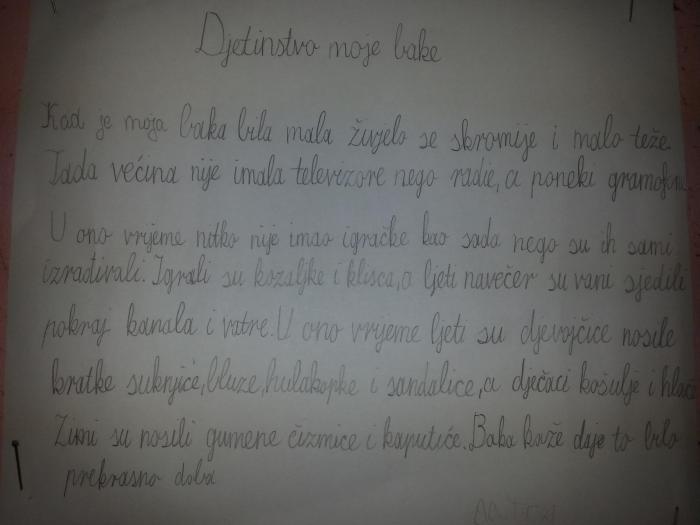 Djetinstvo moje bake
Kad je moja baka bila mala živjelo se skromije i malo teže.
Tada većina nije imala televizore nego radie, a poneki gramofon
U ono vrijeme nitko nije imao igračke kao sada nego su ih sami
izrađivali. Igrali su kozaljke i klisca, a ljeti navečer su vani sjedili
pokraj kanala i vatre. U ono vrijeme ljeti su djevojčice nosile
kratke suknjiće, bluze, hulakopke i sandalice, a dječaci košulje i hlače
Zimi su nosili gumene čizmice i kaputiće. Baka kaže da je to bilo
prekrasno doba